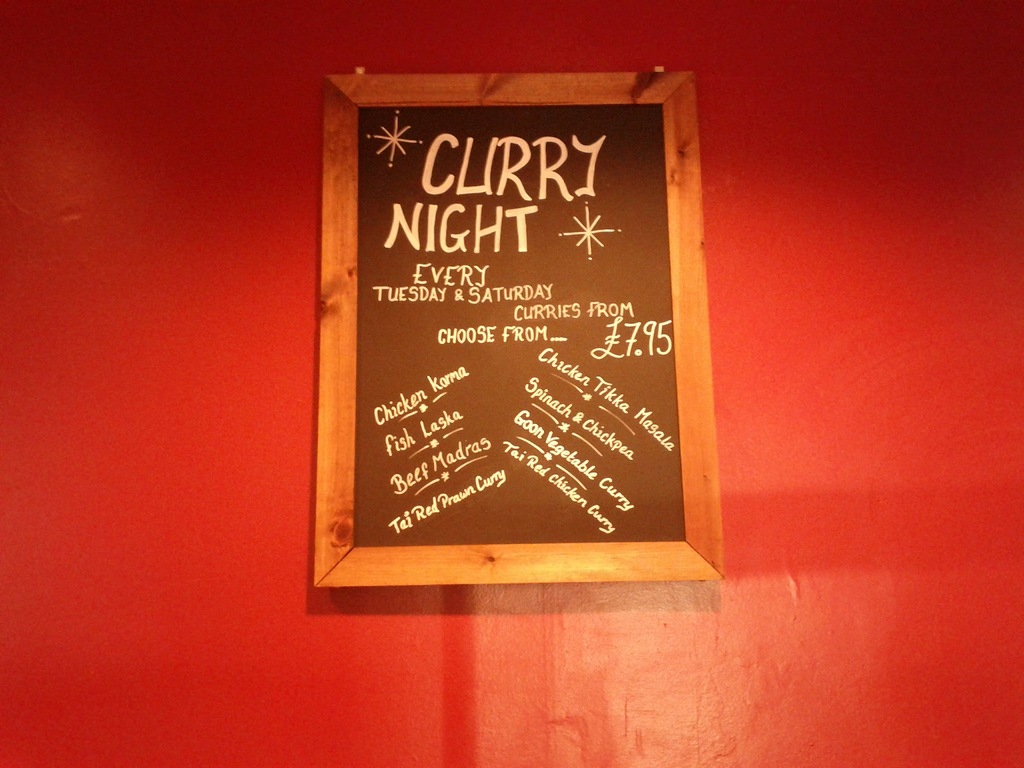 CURRY
NIGHT
EVERY
TUESDAY & SATURDAY
CURRIES FROM
CHOOSE FROM.... £7.95
Chicken Korma
Fish Laska
Beef Madras
Tai Red Prawn Curry
Chicken Tikka Masala
Spinach & Chickpea
Goan Vegetable Curry
Tai Red Chicken Curry